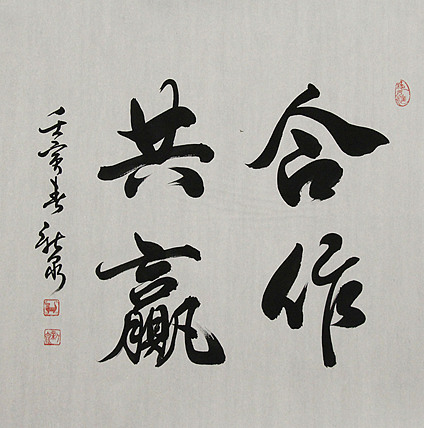 合作
共赢
壬寅春